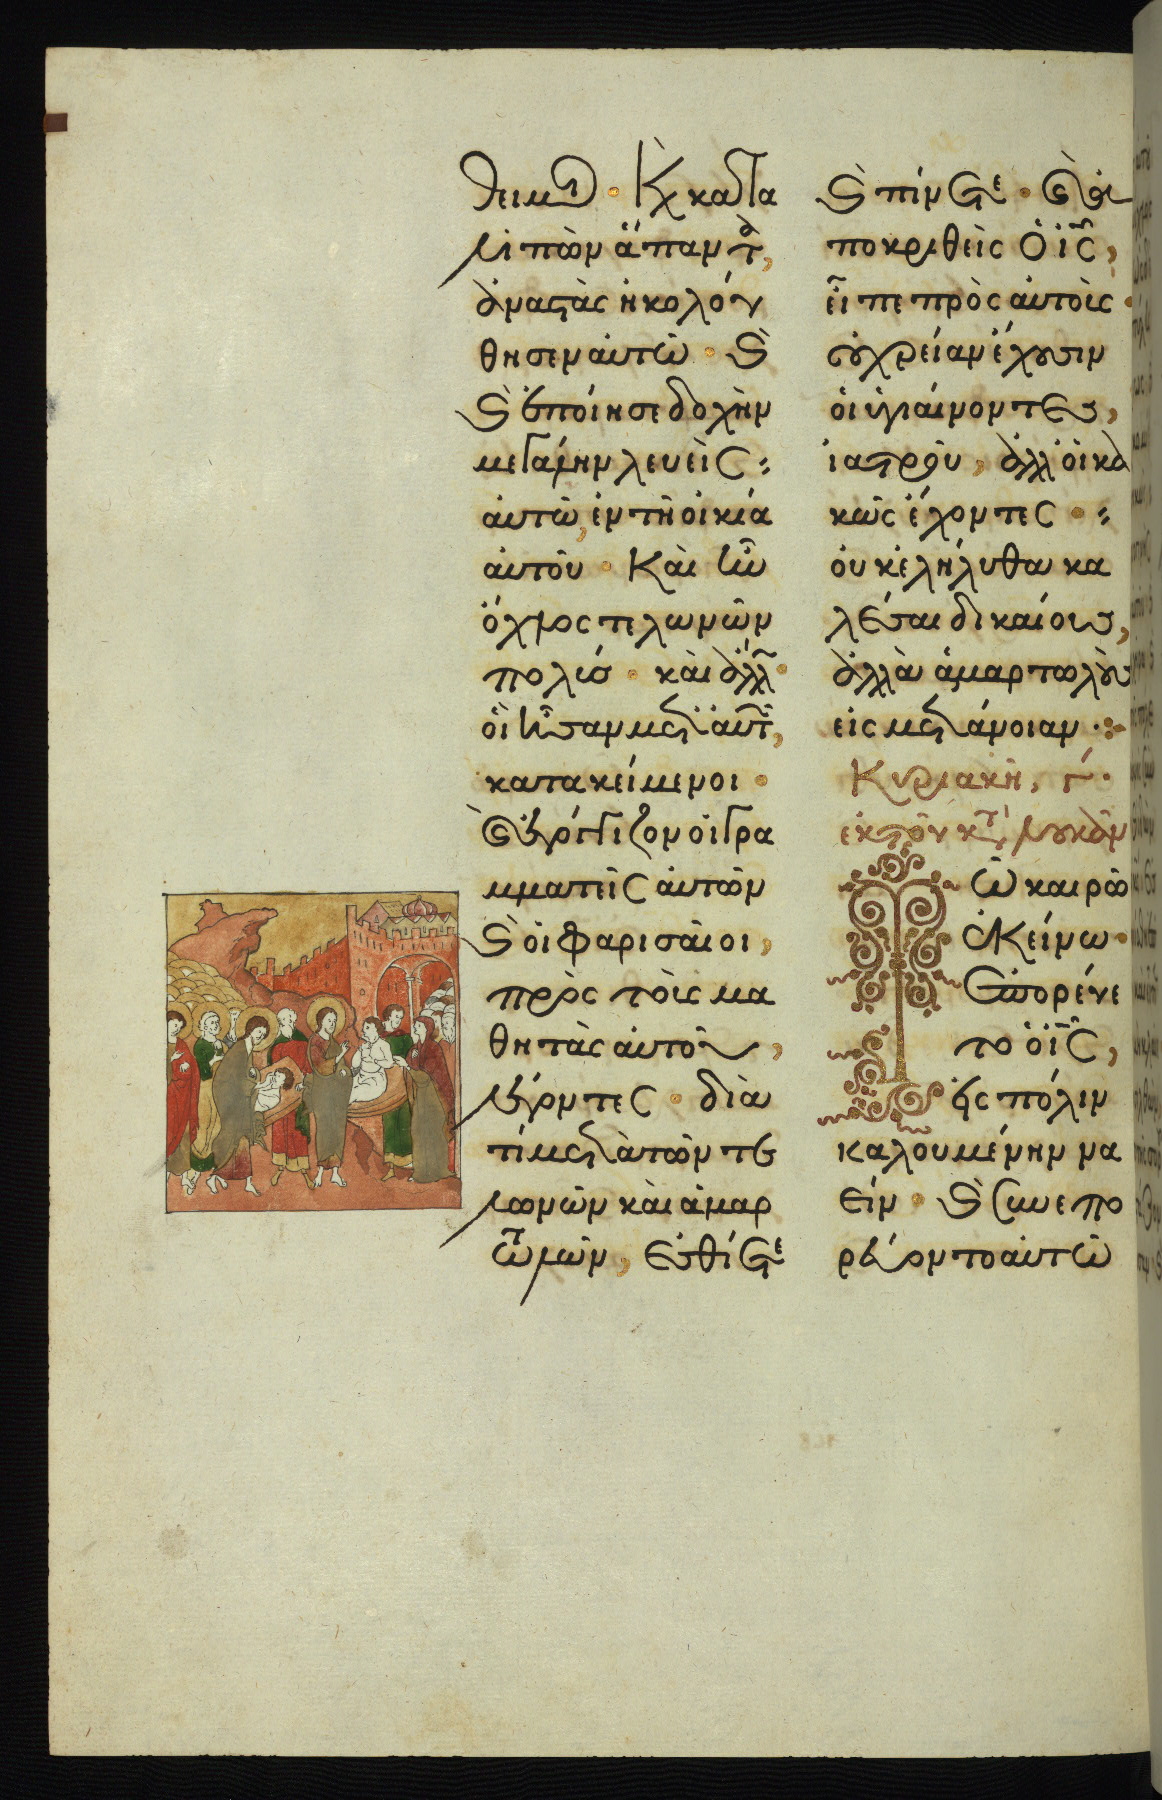 λει μοι · Κ(αὶ) κατα
λιπὼν ἅπαντα,
ἀναστὰς ἠκολού
θησεν αὐτῶ · κ(αὶ)
κ(αὶ) ἐποίησε δοχὴν
μεγάλην λευεὶς
αὐτῶ, ἐν τῆ οἰκία
αὐτοῦ · Καὶ ἦν
ὄχλος τελωνῶν
πολύς · καὶ ἄλλων ·
οἳ ἦσαν μετ' αὐτῶν,
κατακείμενοι ·
κ(αὶ) ἐγόγγυζον οἱ γρα
μματεῖς αὐτῶν
κ(αὶ) οἱ φαρισαῖοι,
πρὸς τοὺς μα
θητὰς αὐτοῦ,
λέγοντες · διὰ
τί μετὰ τῶν τε
λωνῶν καὶ ἁμαρ
τωλῶν, ἐσθίετε
κ(αὶ) πίνετε · κ(αὶ) ἀ
ποκριθεὶς ὁ ι̅ς̅,
εἶπε πρὸς αὐτοὺς ·
οὐ χρείαν ἔχουσιν
οἱ ὑγιαίνοντες,
ἰατροῦ, ἀλλ' οἱ κα
κῶς ἔχοντες ·
οὐκ ἐλήλυθα κα
λέσαι δικαίους,
ἀλλὰ ἁμαρτωλοὺς
εἰς μετάνοιαν ·
Κυριακὴ, γ ·
ἐκ τοῦ κατ(ὰ) λουκᾶν
Τῶ καιρῶ
ἐκείνω ·
ἐπορεύε
το ὁ ι̅ς̅,
εἰς πόλιν
καλουμένην να
είν · κ(αὶ) συνεπο
ρεύοντο αὐτῶ